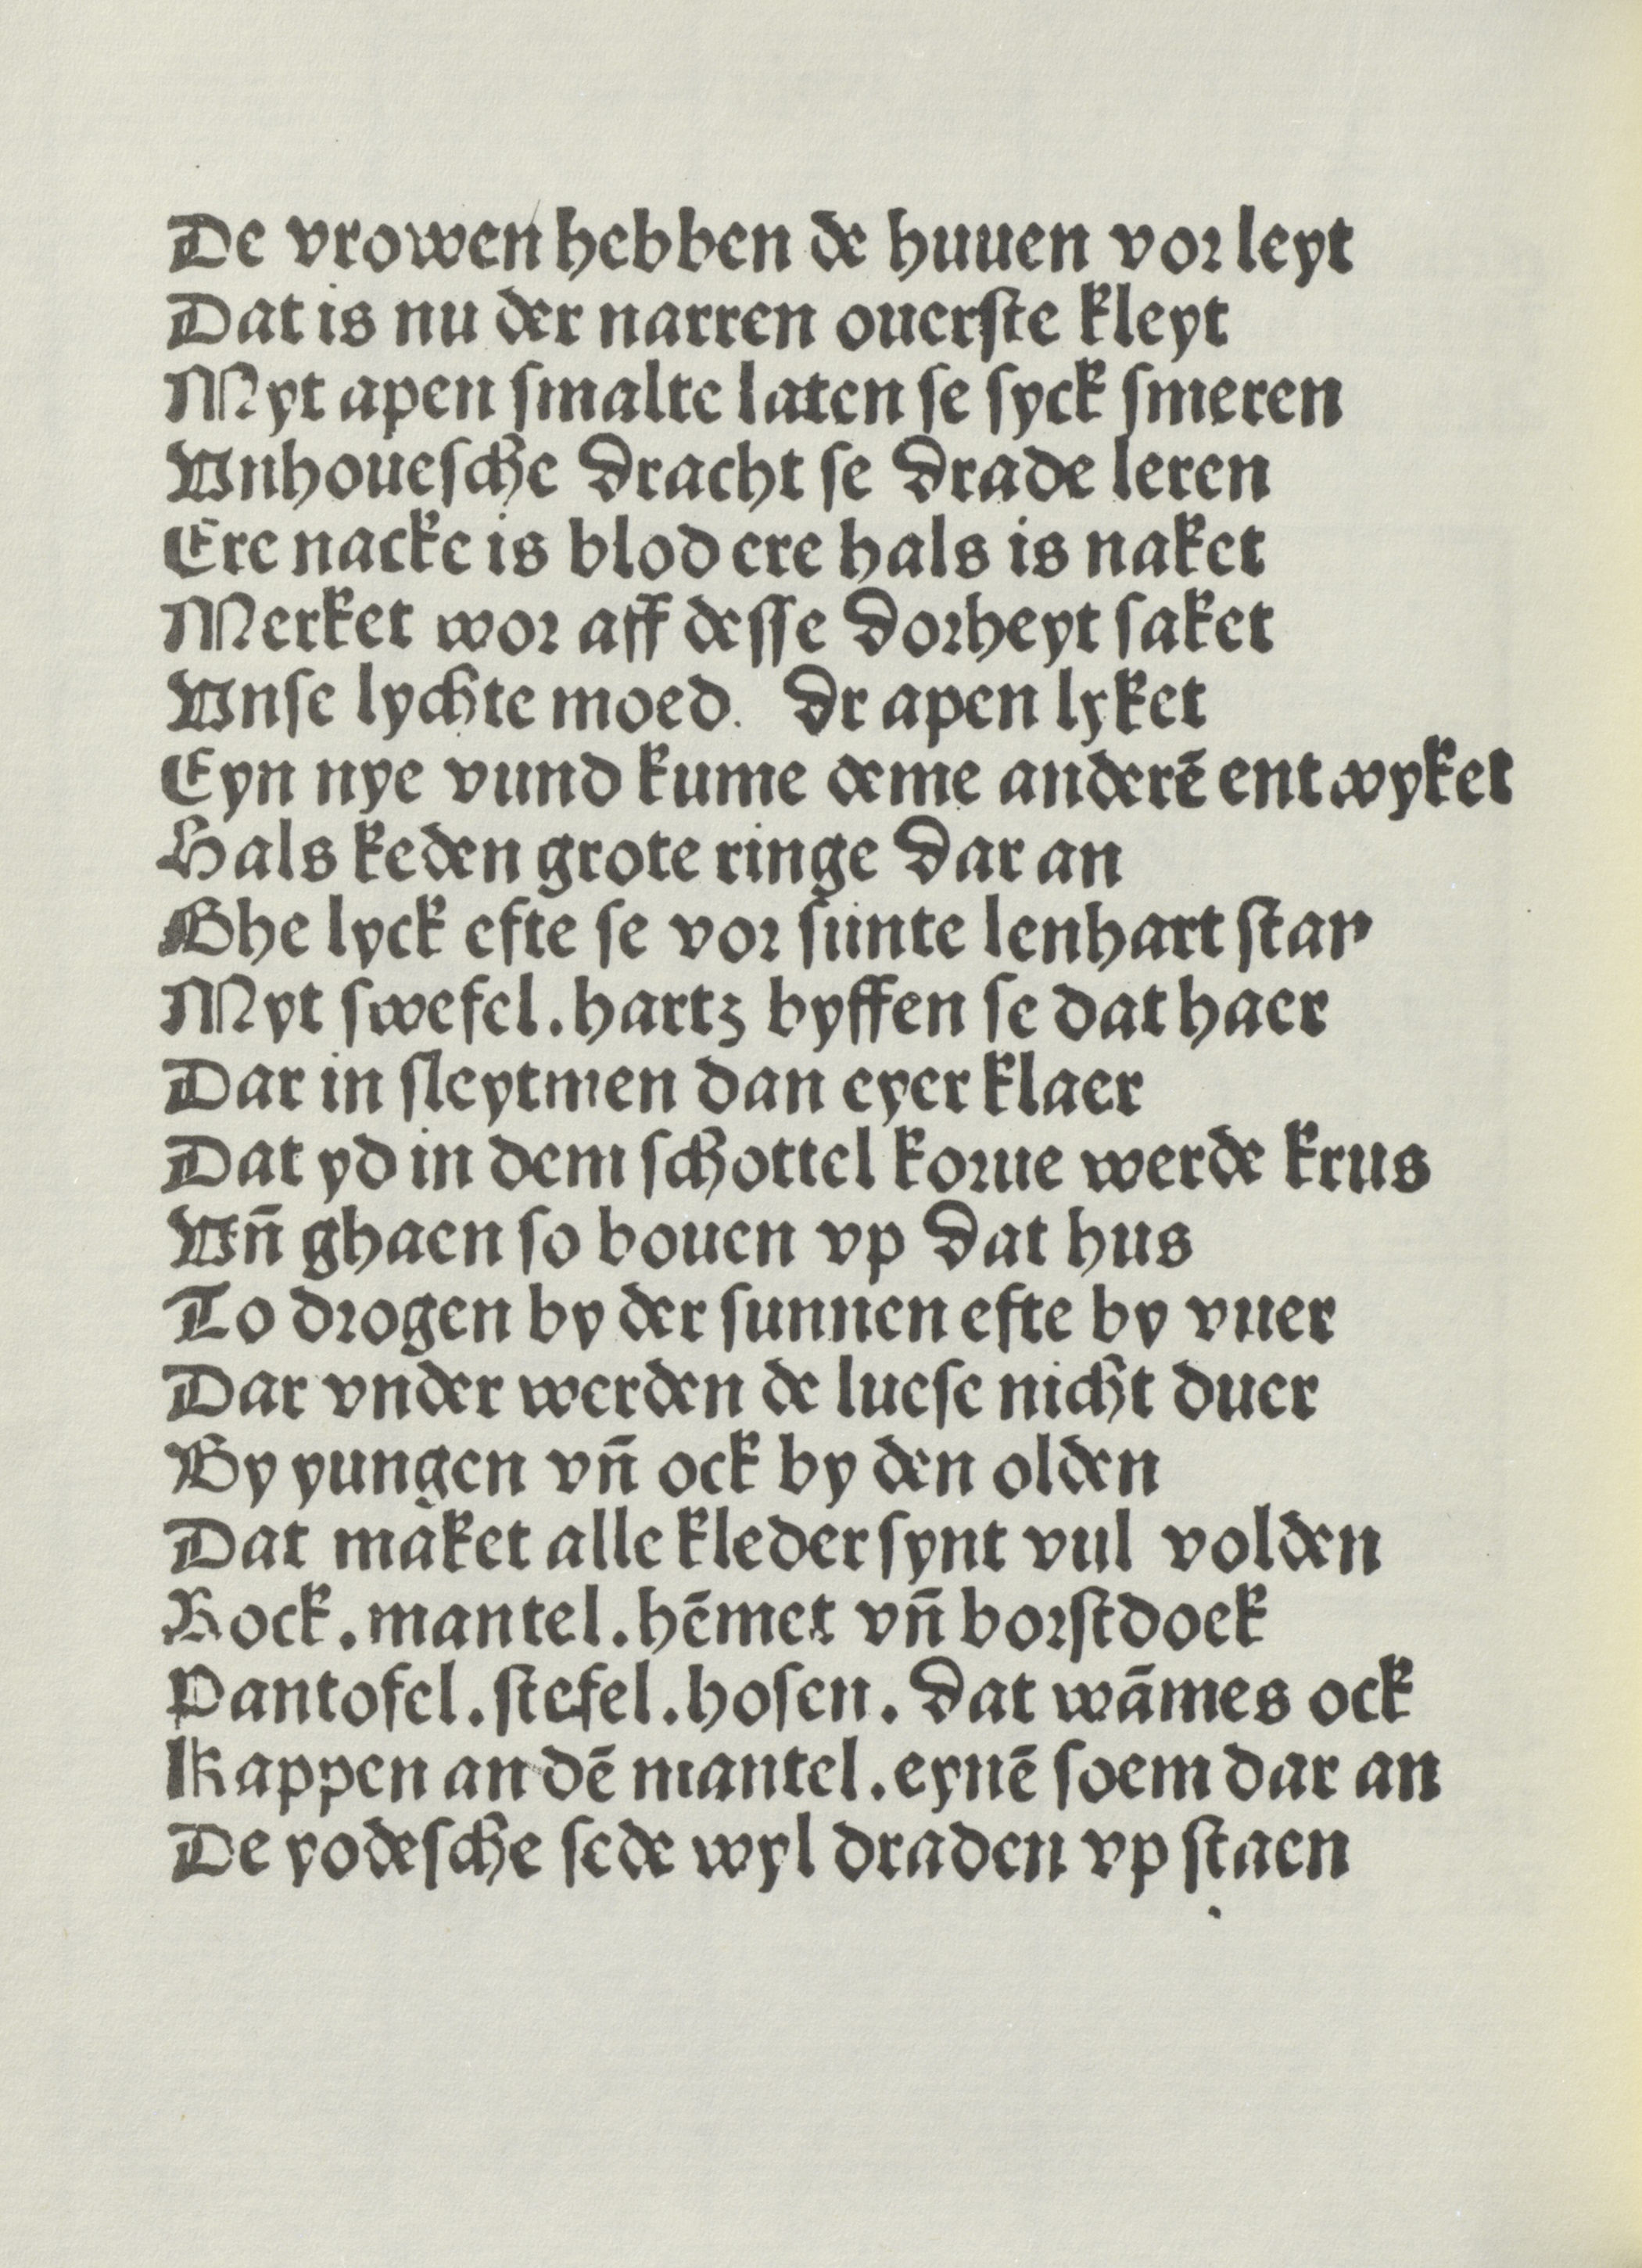 De vrowen hebben de huuen vor leyt
Dat is nu der narren ouerſte kleyt
Myt apen ſmalte laten ſe ſyck ſmeren
Vnhoueſche dracht ſe drade leren
Ere nacke is blod ere hals is naket
Merket wor aff deſſe dorheyt ſaket
Vnſe lychte moed. dr apen lyket
Eyn nye vund kume deme anderē ent wyket
Hals keden grote ringe dar an
Ghe lyck efte ſe vor ſunte lenhart ſtan
Myt ſwefel. hartz byffen ſe dat haer
Dar in ſleytmen dan eyer klaer
Dat yd in dem ſchottel korue werde krus
Vn̄ ghaen ſo bouen vp dat hus
To drogen by der ſunnen efte by vuer
Dar vnder werden de lueſe nicht duer
By yungen vn̄ ock by den olden
Dat maket alle kleder ſynt vul volden
Rock. mantel. hēmet vn̄ borſtdoek
Pantofel. ſtefel. hoſen. dat wāmes ock
Kappen an dē mantel. eynē ſoem dar an
De yodeſche ſede wyl draden vp ſtaen